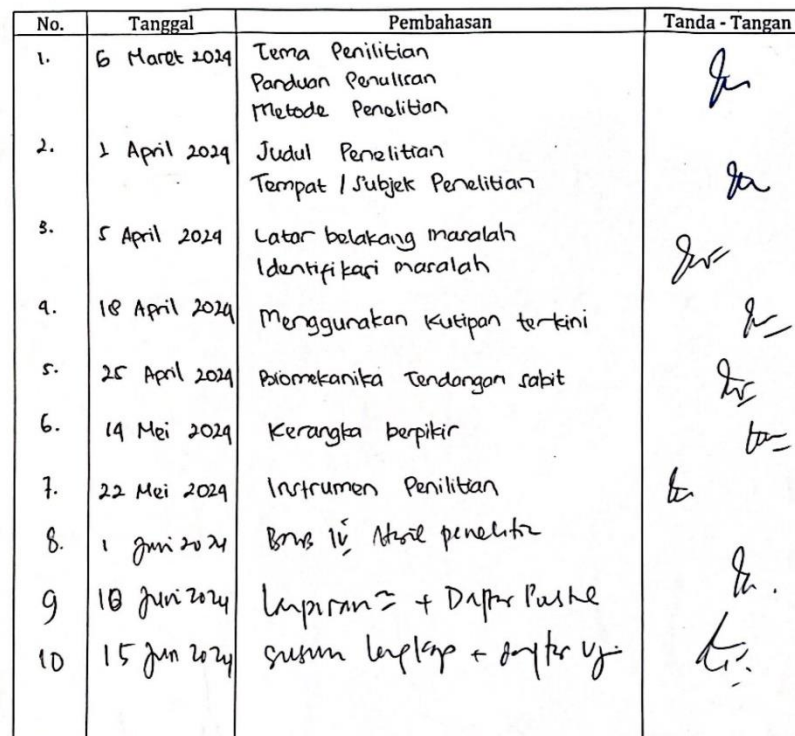 No. Tanggal Pembahasan Tanda - Tangan
1. 6 Maret 2024 Tema Penilitian
Panduan Penulisan
Metode Penelitian
2. 1 April 2024 Judul Penelitian
Tempat / Subjek Penelitian
3. 5 April 2024 Latar belakang masalah
Identifikasi masalah
4. 18 April 2024 Menggunakan Kutipan terkini
5. 25 April 2024 Biomekanika Tendangan sabit
6. 14 Mei 2024 Kerangka berpikir
7. 22 Mei 2024 Instrumen Penilitian
8. 1 Juni 2024
9 Juni 2024 Lampiran + Daftar
10 15 Jun 2024 susun lengkap + daftar